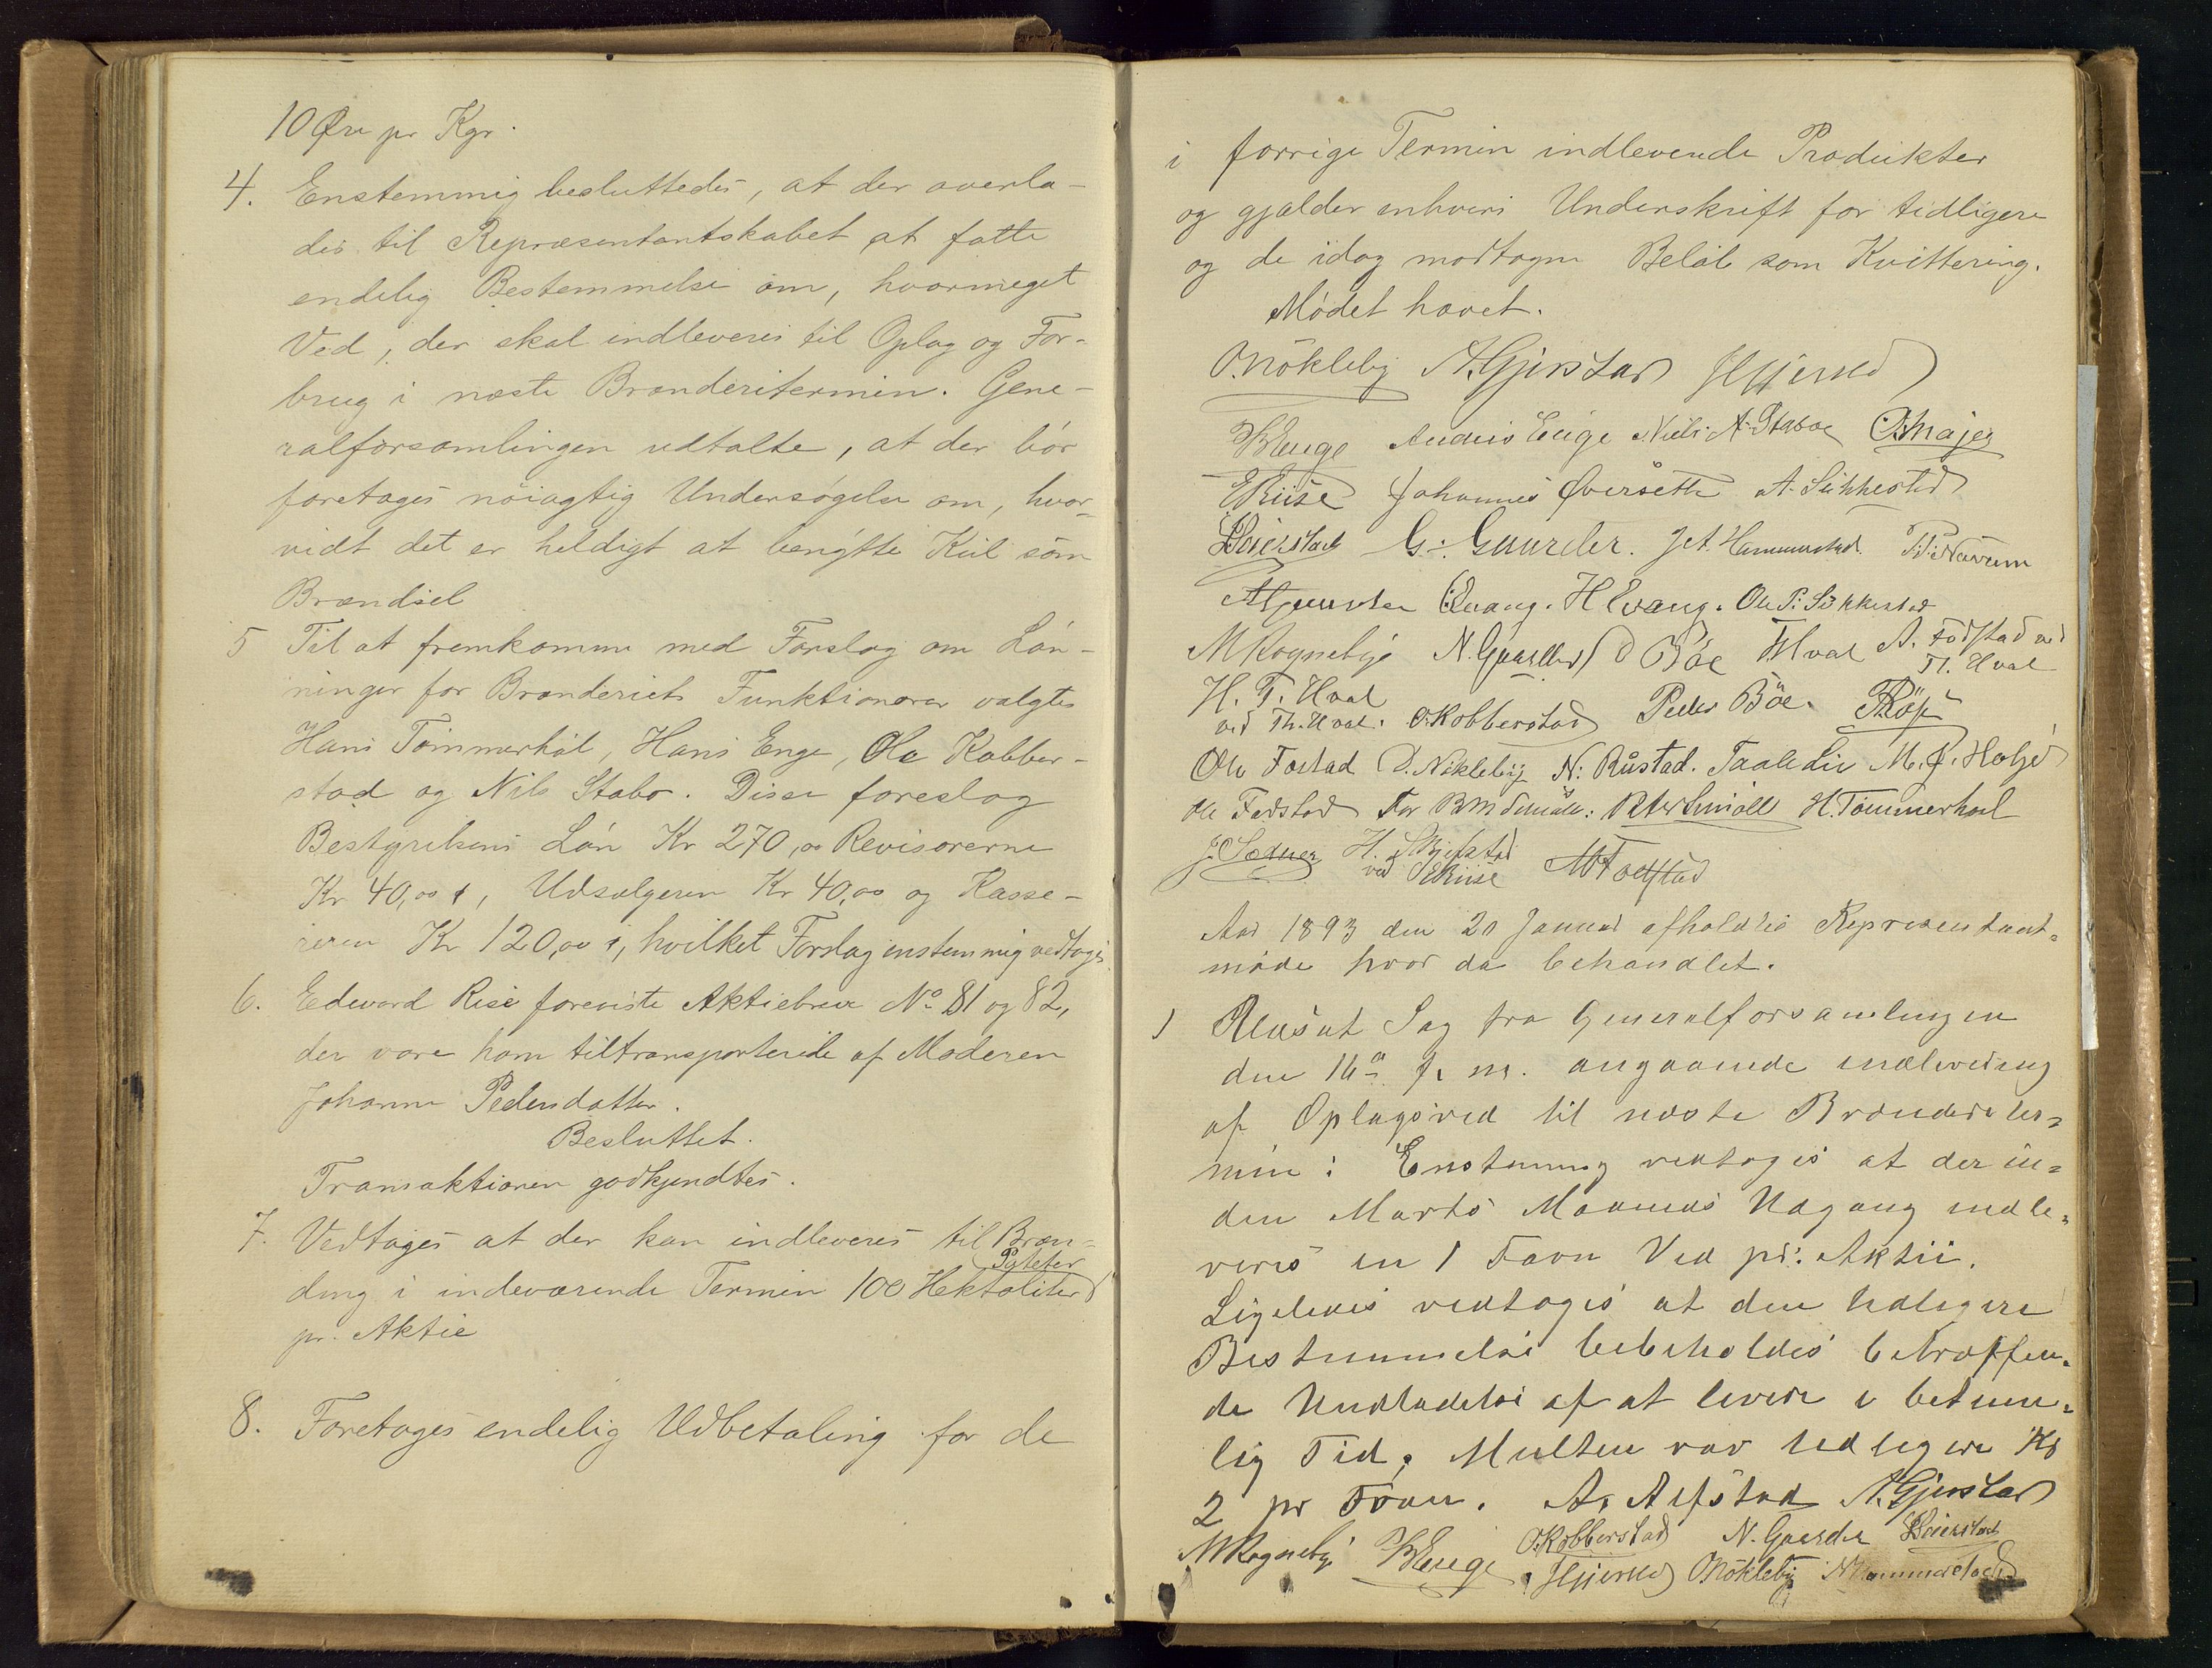 10 Øre pr Kgr.
4. Enstemmig besluttedes, at der overla-
des til Repræsentantskabet at fatte
endelig Bestemmelse om, hvormeget
Ved, der skal indleveres til Oplag og For-
brug i næste Brænderitermin. Gene-
ralforsamlingen udtalte, at der bör
foretages nöiagtig Undersøgelse om, hvor-
vidt det er heldigt at benytte Kul som
Brændsel
5 Til at fremkomme med Forslag om Løn-
ninger for Brænderiets Funktionærer valgtes
Hans Tömmerhol, Hans Enge, Ole Kobber-
stad og Nils Stabo. Disse foreslog
Bestyrelsens Løn Kr 270,00 Revisorerne
Kr 40,00, Udsælgeren Kr 40,00 og Kasse-
reren Kr 120,00, hvilket Forslag enstemmig vedtoges
6. Edevard Rise foreviste Aktiebreve No 81 og 82,
der vare ham tiltransporterede af Moderen
Johanne Pedersdatter.
Besluttet.
Transaktionen godkjendtes.
7. Vedtoges at der kan indleveres til Bræn-
Poteter
ding i indeværende Termin 100 Hektoliter
pr. Aktie
8. Foretoges endelig Udbetaling for de
i forrige Termin indleverede Produkter
og gjælder enhvers Underskrift for tidligere
og de idag modtagne Beløb som Kvittering.
Mödet hævet.
O. Nökleby A. Gjerstad
H Enge Anders Enge Niels A. Staboe
E Riise Johannes Øversette A. Sukkestad
G. Gaarder. Hammerstad.
H Evang. Ole P. Sukkestad
M Rognebye N. Gaarder Böe T Hval A. Fodstad ved
Th. Hval
H. T. Hval
ved Th. Hval. O. Kobberstad Peder Böe.
Ole Fostad D. Nökleby N. Rustad. M. J. Holje
Ole Fodstad for Peter Smöll H. Tömmerhol
H. Skjefstad
ved E Riise
Aar 1893 den 20 Januar afholdtes Repræsentant-
møde hvor da behandlet.
1 Udsat Sag fra Generalforsamlingen
den 16de f. m. angaaende indlevering
af Oplagsved til næste Brænderiter-
min: Enstemmig vedtoges at der in-
den Marts Maaneds Udgang indle-
veres en 1 Favn Ved pr. Aktie.
Ligeledes vedtoges at den tidligere
Bestemmelse beibeholdes betræffen-
de Undladelse af at levere i betime-
lig Tid, Multen var tidligere Kr
2 pr Favn. A. Alfstad A. Gjerstad
M Rognebye H Enge O. Kobberstad N. Gaarder
O. Nökleby Hammerstad